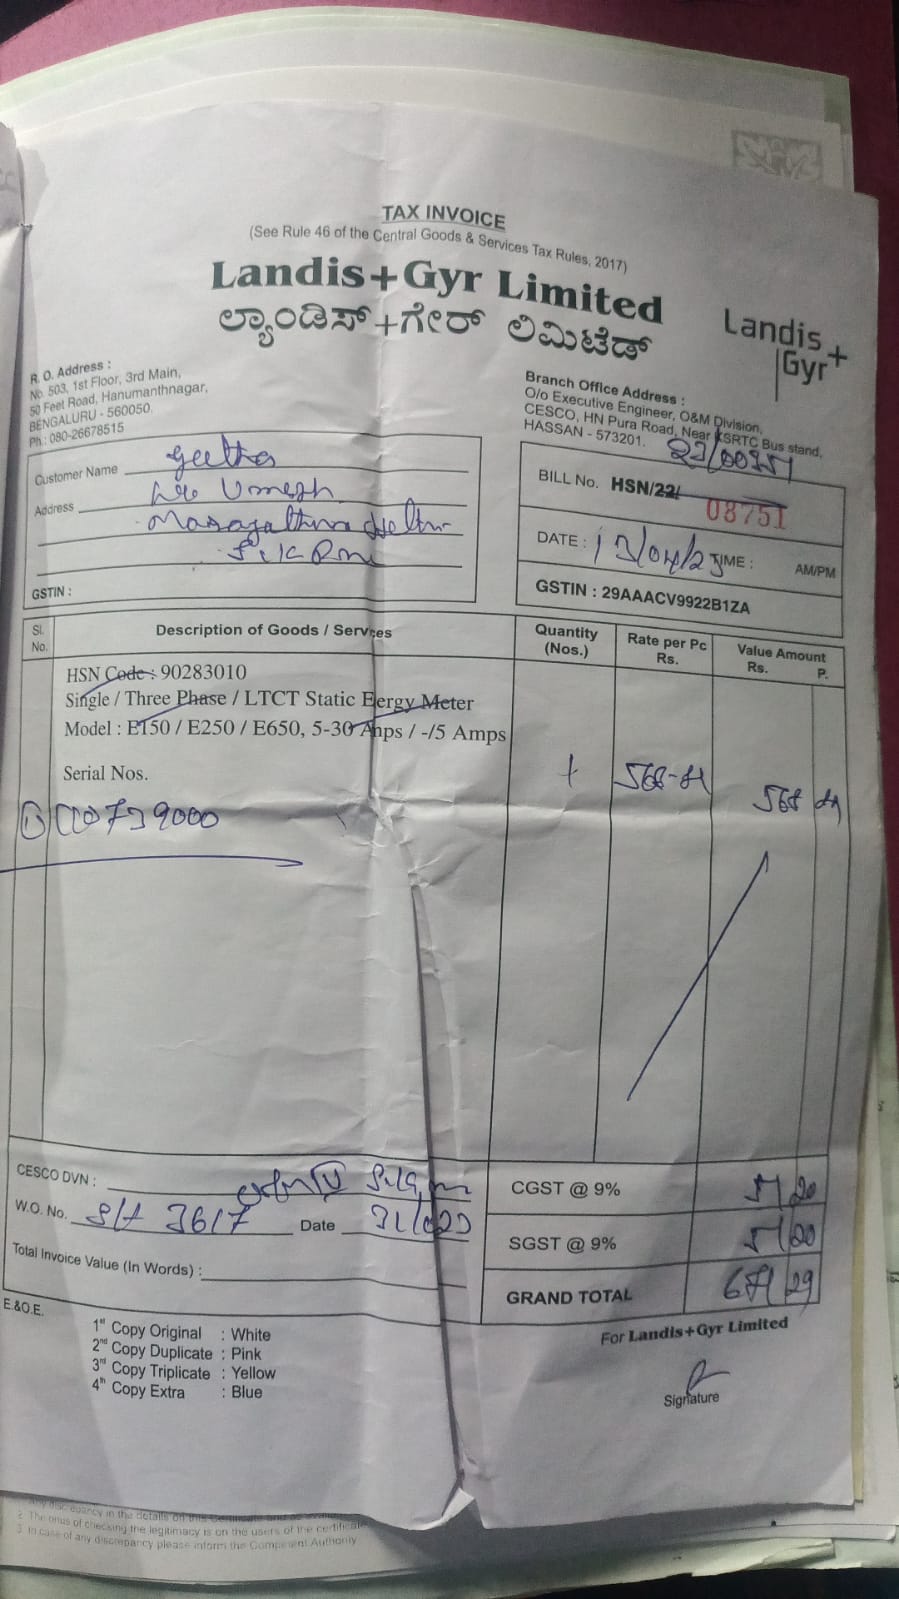 TAX INVOICE
(See Rule 46 of the Central Goods & Services Tax Rules, 2017)
Landis+Gyr Limited
ಲ್ಯಾಂಡಿಸ್+ಗೇರ್ ಲಿಮಿಟೆಡ್
Landis+
Gyr
R. O. Address :
No. 503, 1st Floor, 3rd Main,
50 Feet Road, Hanumanthnagar,
BENGALURU - 560050.
Ph.: 080-26678515
Branch Office Address :
O/o Executive Engineer, O&M Division,
CESCO, HN Pura Road, Near KSRTC Bus stand,
HASSAN - 573201.
Customer Name Geetha
Address Umesh
GSTIN :
BILL No. HSN/22/
08751
DATE : 13/04/23 TIME : AM/PM
GSTIN : 29AAACV9922B1ZA
Sl. No. Description of Goods / Services Quantity (Nos.) Rate per Pc Rs. Value Amount Rs. P.
HSN Code : 90283010
Single / Three Phase / LTCT Static Eergy Meter
Model : E150 / E250 / E650, 5-30 Anps / -/5 Amps
Serial Nos.
1
CESCO DVN :
W.O. No. 3617 Date
Total Invoice Value (In Words) :
CGST @ 9% 51 20
SGST @ 9% 51 20
GRAND TOTAL 671 29
E.&O.E.
1st Copy Original : White
2nd Copy Duplicate : Pink
3rd Copy Triplicate : Yellow
4th Copy Extra : Blue
For Landis+Gyr Limited
Signature
2 The onus of checking the legitimacy is on the users of the
3 In case of any discrepancy please inform the Competent Authority